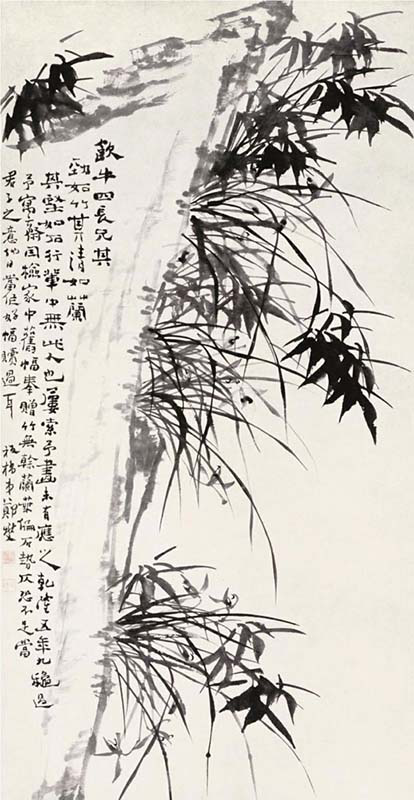 四長兄其
勁如竹其清如蘭
其堅如石行輩中無此人也屢索予畫未有應之乾隆五年九秋過
予寓齋因檢家中舊幅奉贈竹無幹蘭葉偏石勢仄恐不足當
君子之意他日當作好幅贖過耳 板橋弟鄭燮